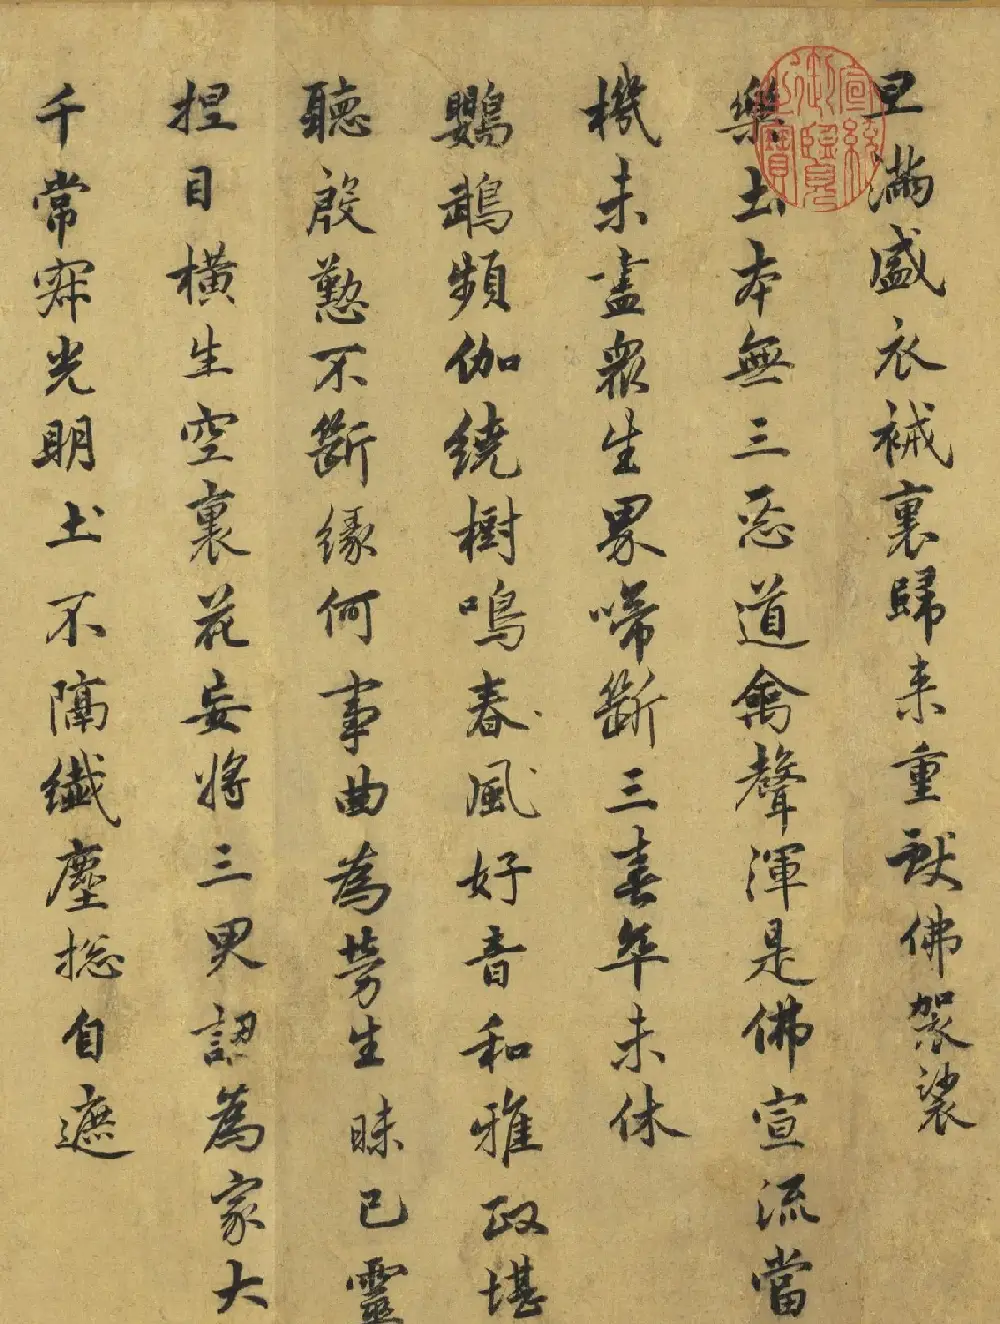 旦滿盛衣祴裏歸来重獻佛袈裟
樂土本無三惡道禽聲渾是佛宣流當
機未盡衆生界啼斷三春卒未休
鸚鵡頻伽繞樹鳴春風好音和雅政堪
聽殷懃不斷緣何事曲為勞生昧已靈
捏目橫生空裏花妄將三界認為家大
千常寂光明土不隔纖塵捴自遮
宣統御覽之寶